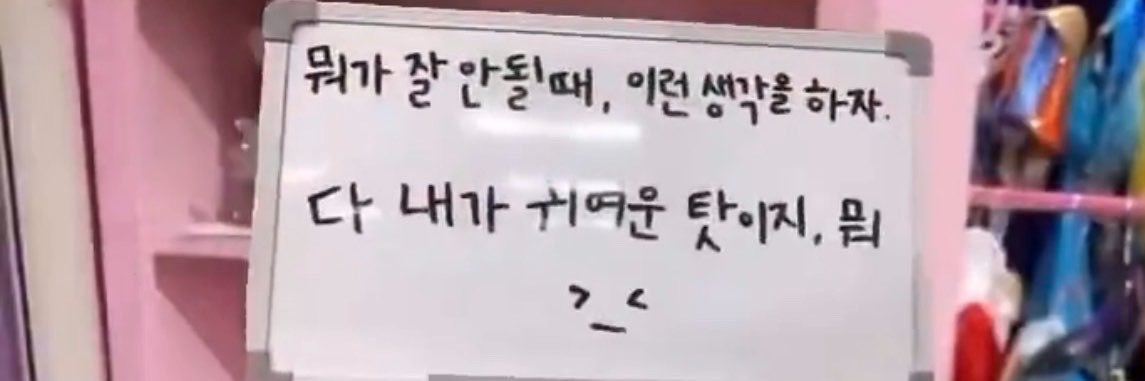 뭐가 잘 안될때, 이런 생각을 하자.
다 내가 귀여운 탓이지, 뭐
>_<